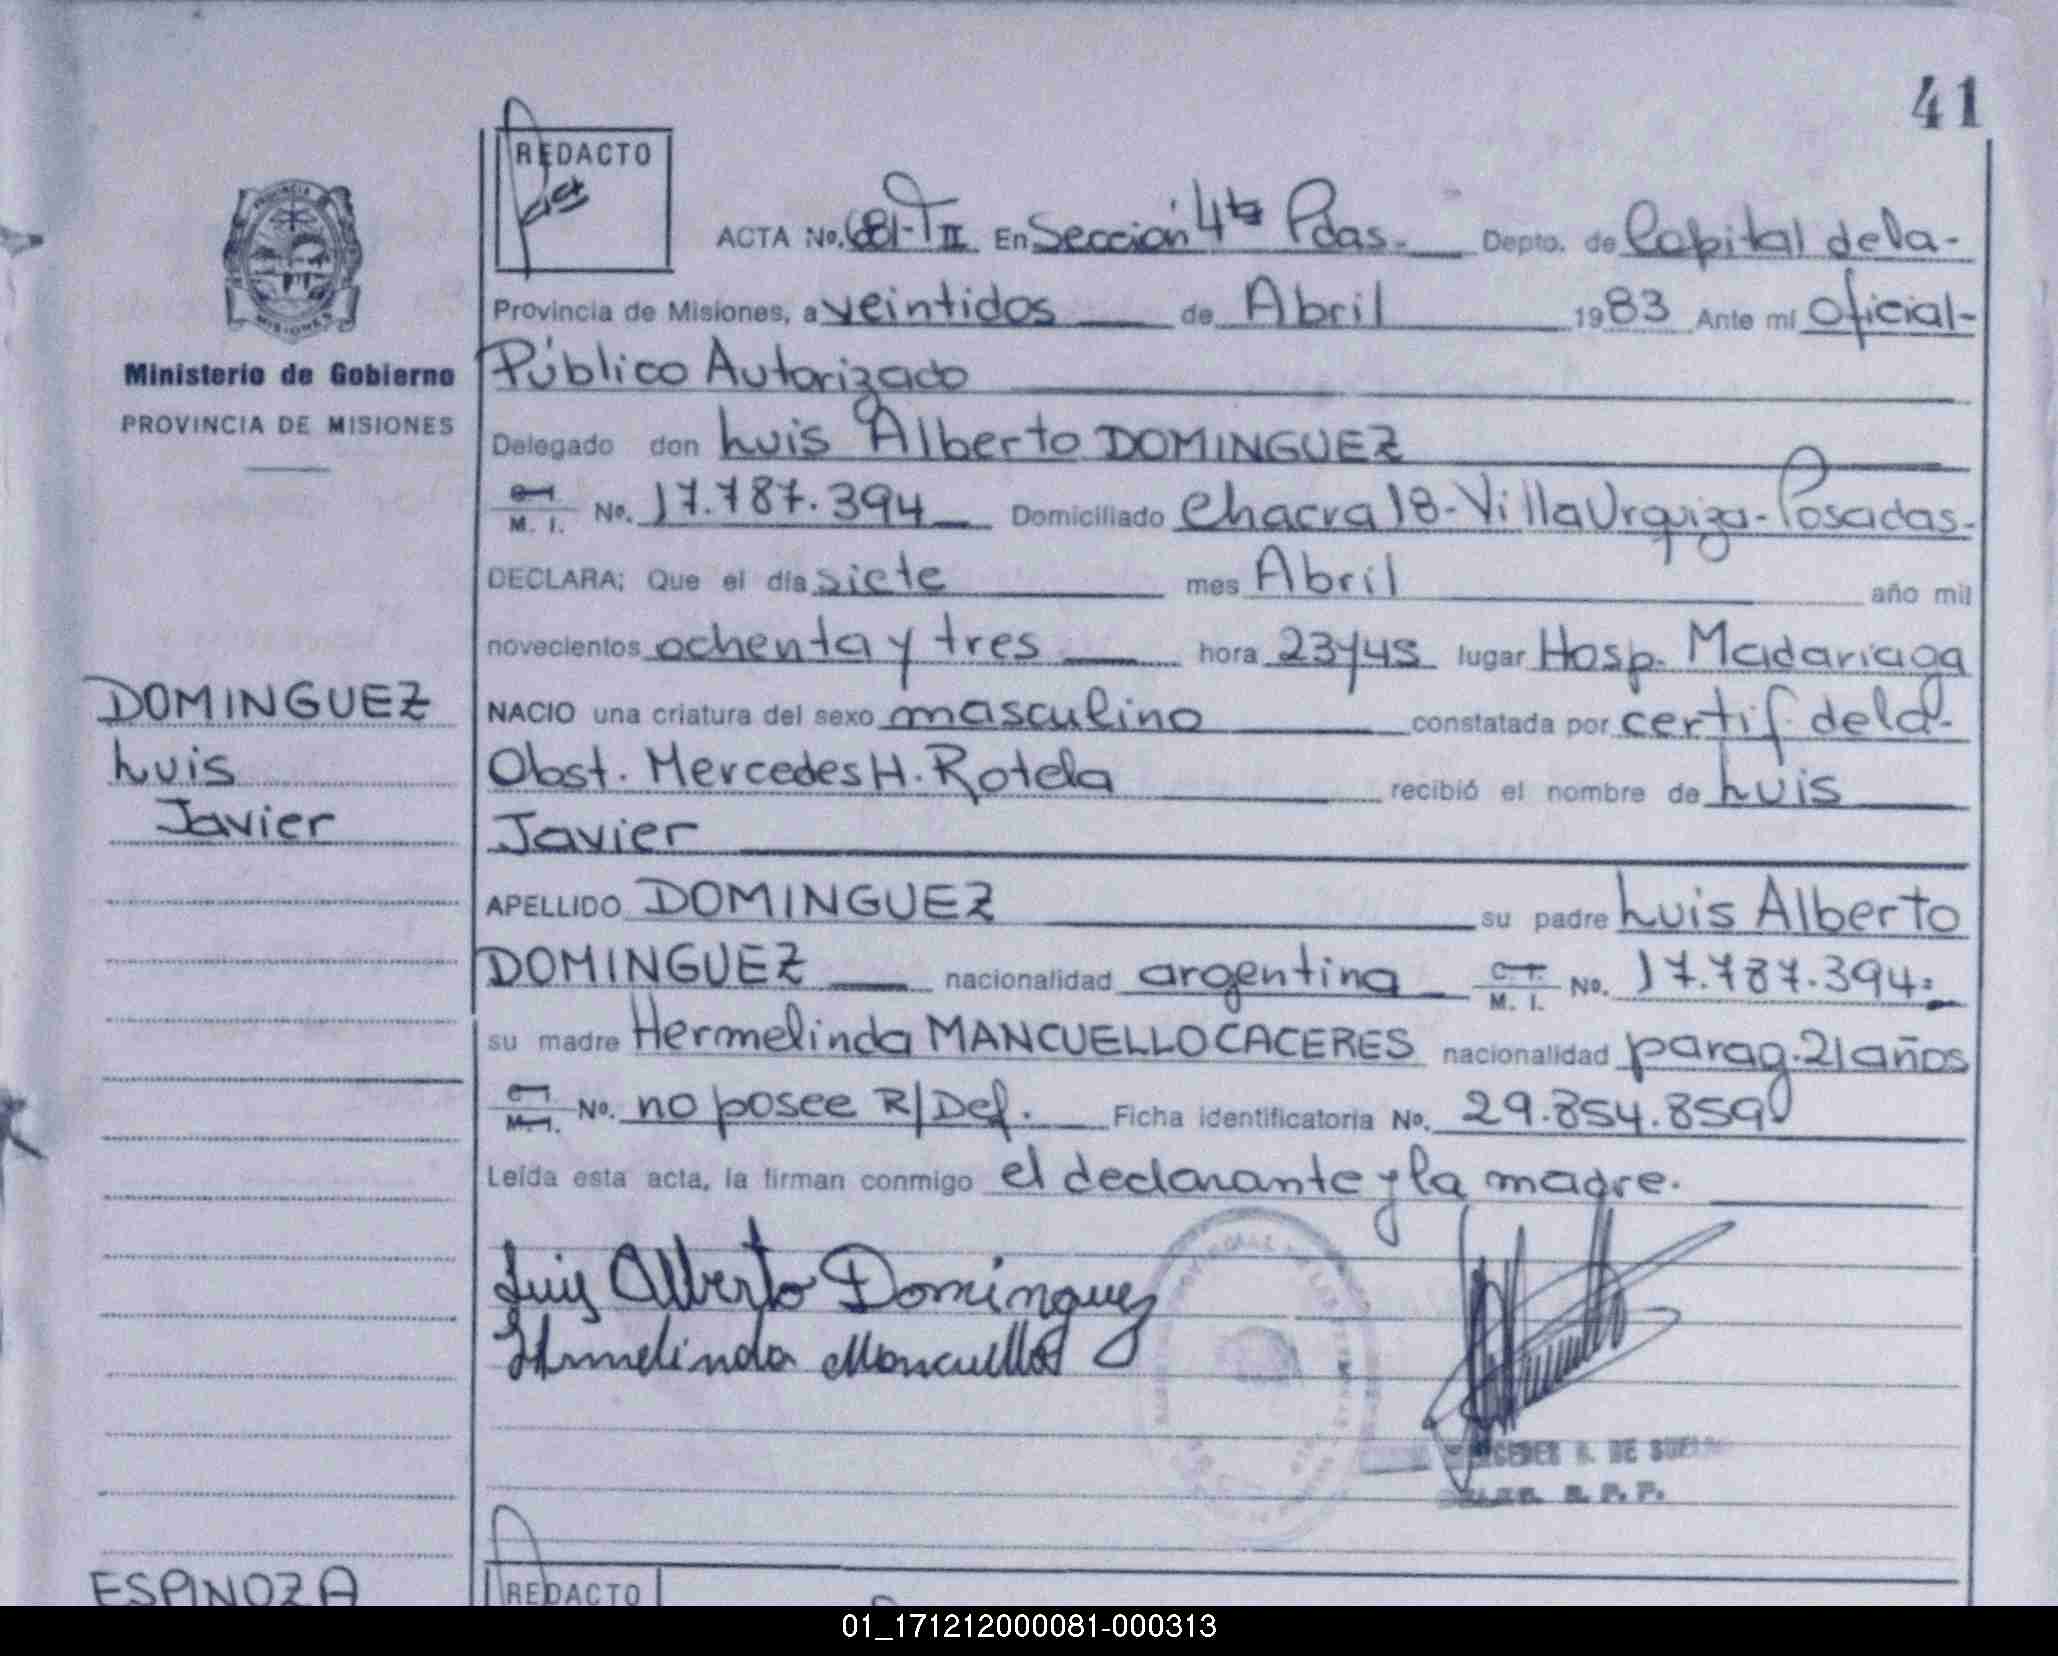 41
REDACTO
ACTA No. 681-T II En Sección 4ta Pdas. Depto. de Capital de la-
Provincia de Misiones, a veintidos de Abril 1983 Ante mi Oficial-
Público Autorizado
Ministerio de Gobierno
PROVINCIA DE MISIONES
Delegado don Luis Alberto DOMINGUEZ
M. I. No. 17.787.394 Domiciliado Chacra 18-Villa Urquiza-Posadas-
DECLARA: Que el día siete mes Abril año mil
novecientos ochenta y tres hora 23y45 lugar Hosp. Madariaga
DOMINGUEZ
Luis
Javier
NACIO una criatura del sexo masculino constatada por certif. de la-
Obst. Mercedes H. Rotela recibió el nombre de Luis
Javier
APELLIDO DOMINGUEZ su padre Luis Alberto
DOMINGUEZ nacionalidad argentina C. I. M. I. No. 17.787.394.
su madre Hermelinda MANCUELLO CACERES nacionalidad parag. 21 años
M. I. No. no posee R/Def. Ficha identificatoria No. 29.854.859
Leída esta acta, la firman conmigo el declarante y la madre.
Luis Alberto Dominguez
Hermelinda Mancuello
DE
R. P. P.
ESPINOZA
REDACTO
01_171212000081-000313